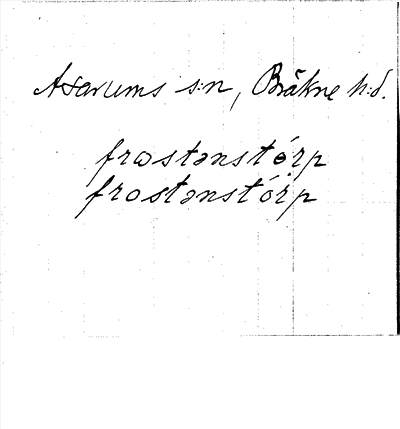 Asarums s:n, Bräkne h:d.
frostənstó̩rp
frostənstó̩rp